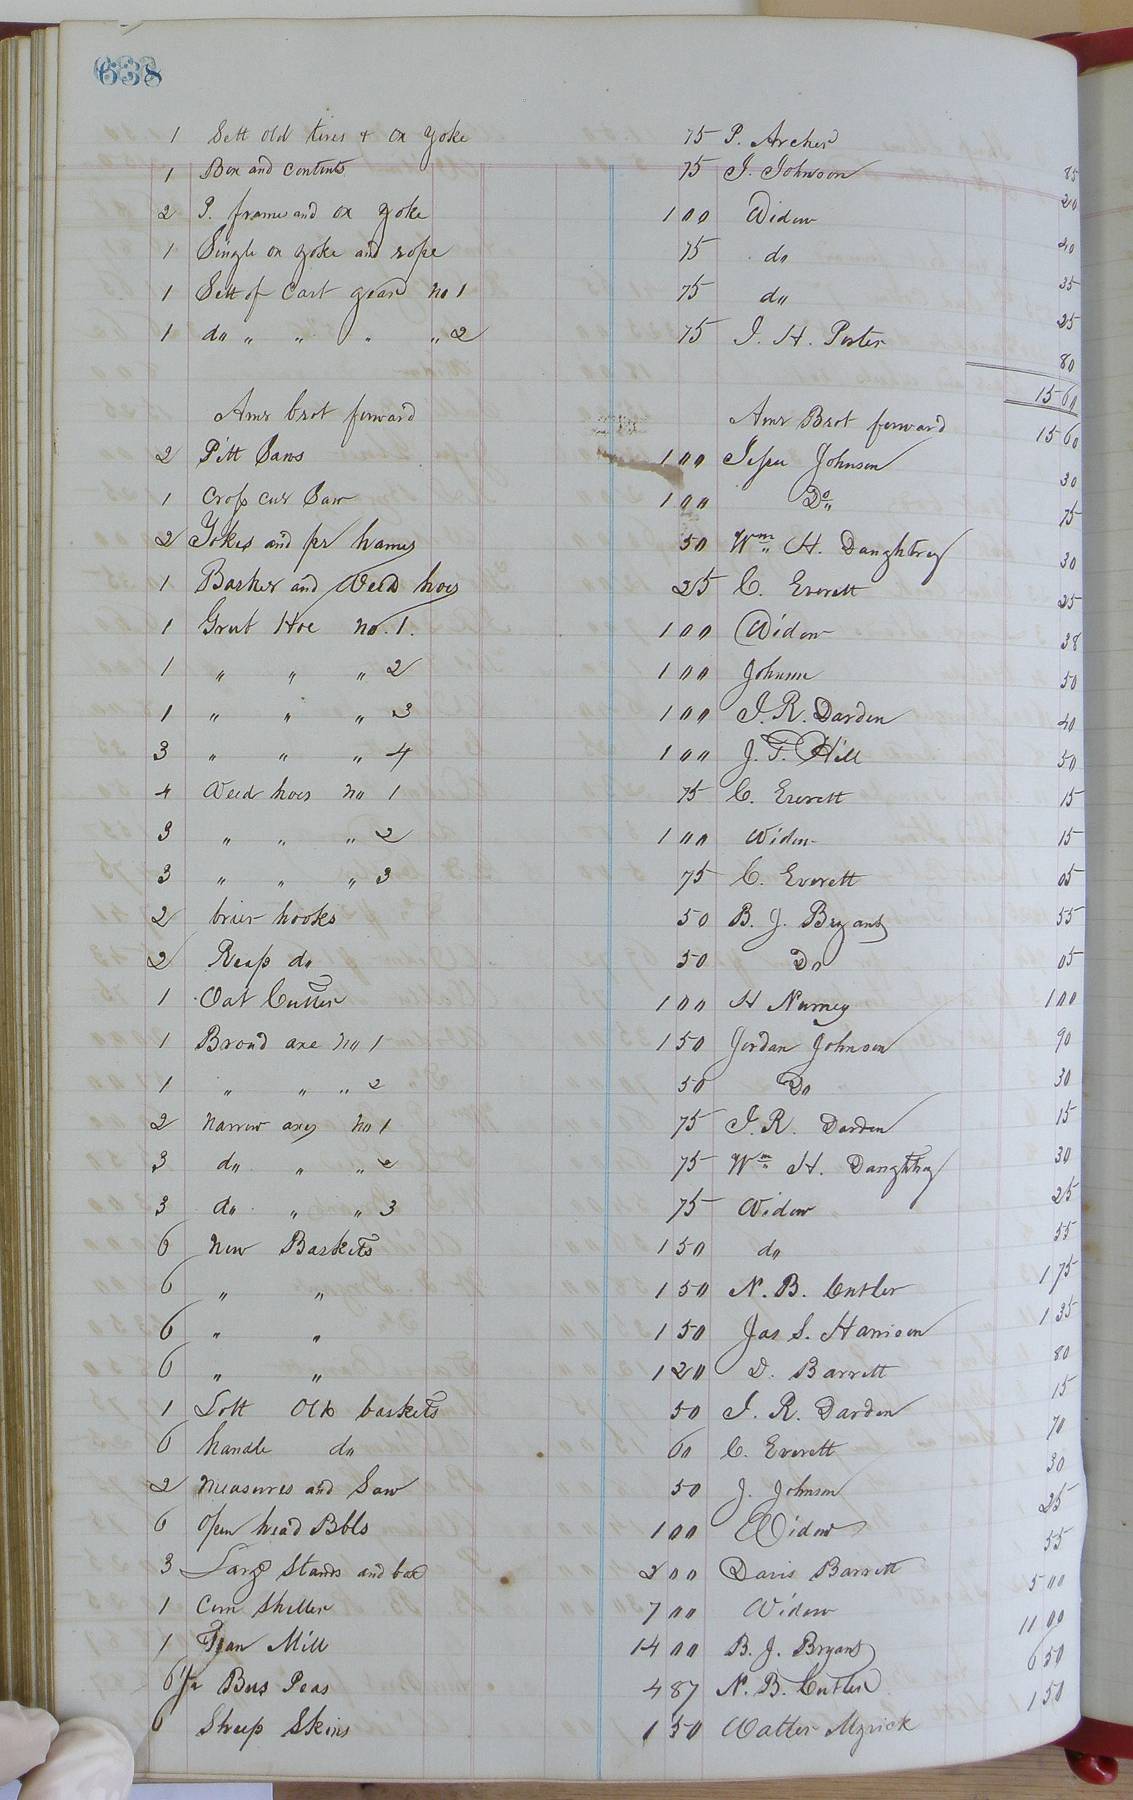 638
1 Sett old tires + ox yoke 75 P. Archer 85
1 Box and contents 75 J. Johnson 20
2 P. frame and ox yoke 1 00 Widow 40
1 Single ox yoke and rope 75 do 35
1 Sett of Cart gear no 1 75 do 25
1 do " " " " 2 75 J. H. Porter 80
15 60
Amt brot forward Amt Brot forward 15 60
2 Pitt Saws 1 00 Johnson 30
1 Cross cut Saw 1 00 Do 75
2 Yokes and pr hames 50 Wm H. Daughtrey 30
1 Basket and Weed hoes 25 C. Everett 25
1 Grub Hoe no. 1. 1 00 Widow 38
1 " " " 2 1 00 Johnson 50
1 " " " 3 1 00 J. R. Darden 40
3 " " " 4 1 00 J. T. Hill 50
4 Weed hoes no 1 75 C. Everett 15
3 " " " 2 1 00 Widow 15
3 " " " 3 75 C. Everett 05
2 brier hooks 50 B. J. Bryant 55
2 Reap do 50 Do 05
1 Oat Cutter 1 00 H Nurney 1 00
1 Broad axe no 1 1 50 Jordan Johnson 90
1 " " " 2 50 Do 30
2 narrow axes no 1 75 J. R. Darden 15
3 do " " 2 75 Wm H. Daughtrey 30
3 do " " 3 75 Widow 25
6 new Baskets 1 50 do 55
6 " " 1 50 N. B. Cutler 1 75
6 " " 1 50 Jas S. Harrison 1 35
6 " " 1 20 D. Barrett 80
1 Lott Old baskets 50 J. R. Darden 15
6 handle do 60 C. Everett 70
2 measures and Saw 50 J. Johnson 30
6 open head Bbls 1 00 Widow 25
3 Large Stands and box 2 00 Davis Barrett 55
1 Corn Sheller 7 00 Widow 5 00
1 Fan Mill 14 00 B. J. Bryant 11 00
6 1/2 Bus Peas 4 87 N. B. Cutler 6 50
6 Sheep Skins 1 50 Walter Myrick 1 50